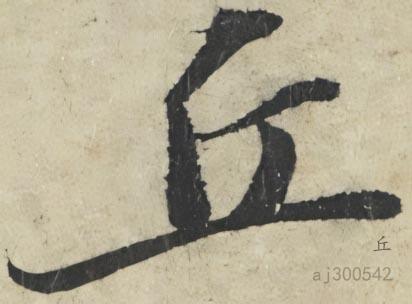 丘
丘
aj300542